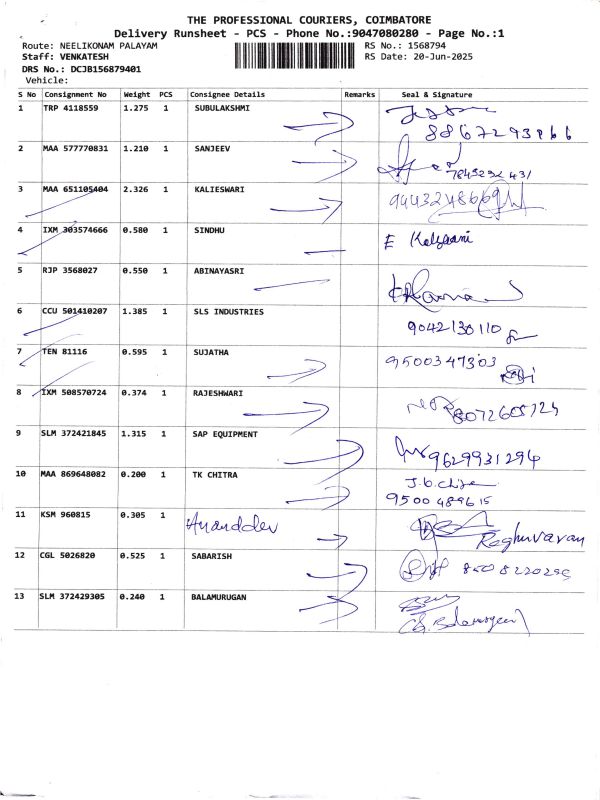 THE PROFESSIONAL COURIERS, COIMBATORE
Delivery Runsheet - PCS - Phone No.:9047080280 - Page No.:1
Route: NEELIKONAM PALAYAM RS No.: 1568794
Staff: VENKATESH RS Date: 20-Jun-2025
DRS No.: DCJB156879401
Vehicle:
S No Consignment No Weight PCS Consignee Details Remarks Seal & Signature
1 TRP 4118559 1.275 1 SUBULAKSHMI
2 MAA 577770831 1.210 1 SANJEEV
3 MAA 651105404 2.326 1 KALIESWARI
4 IXM 303574666 0.580 1 SINDHU E Kalyaani
5 RJP 3568027 0.550 1 ABINAYASRI
6 CCU 501410207 1.385 1 SLS INDUSTRIES
9042130110
7 TEN 81116 0.595 1 SUJATHA 9500347303
8 IXM 508570724 0.374 1 RAJESHWARI
9 SLM 372421845 1.315 1 SAP EQUIPMENT
9629931294
10 MAA 869648082 0.200 1 TK CHITRA
9500489615
11 KSM 960815 0.305 1 Ananddev
Raghuvaran
12 CGL 5026820 0.525 1 SABARISH
13 SLM 372429305 0.240 1 BALAMURUGAN